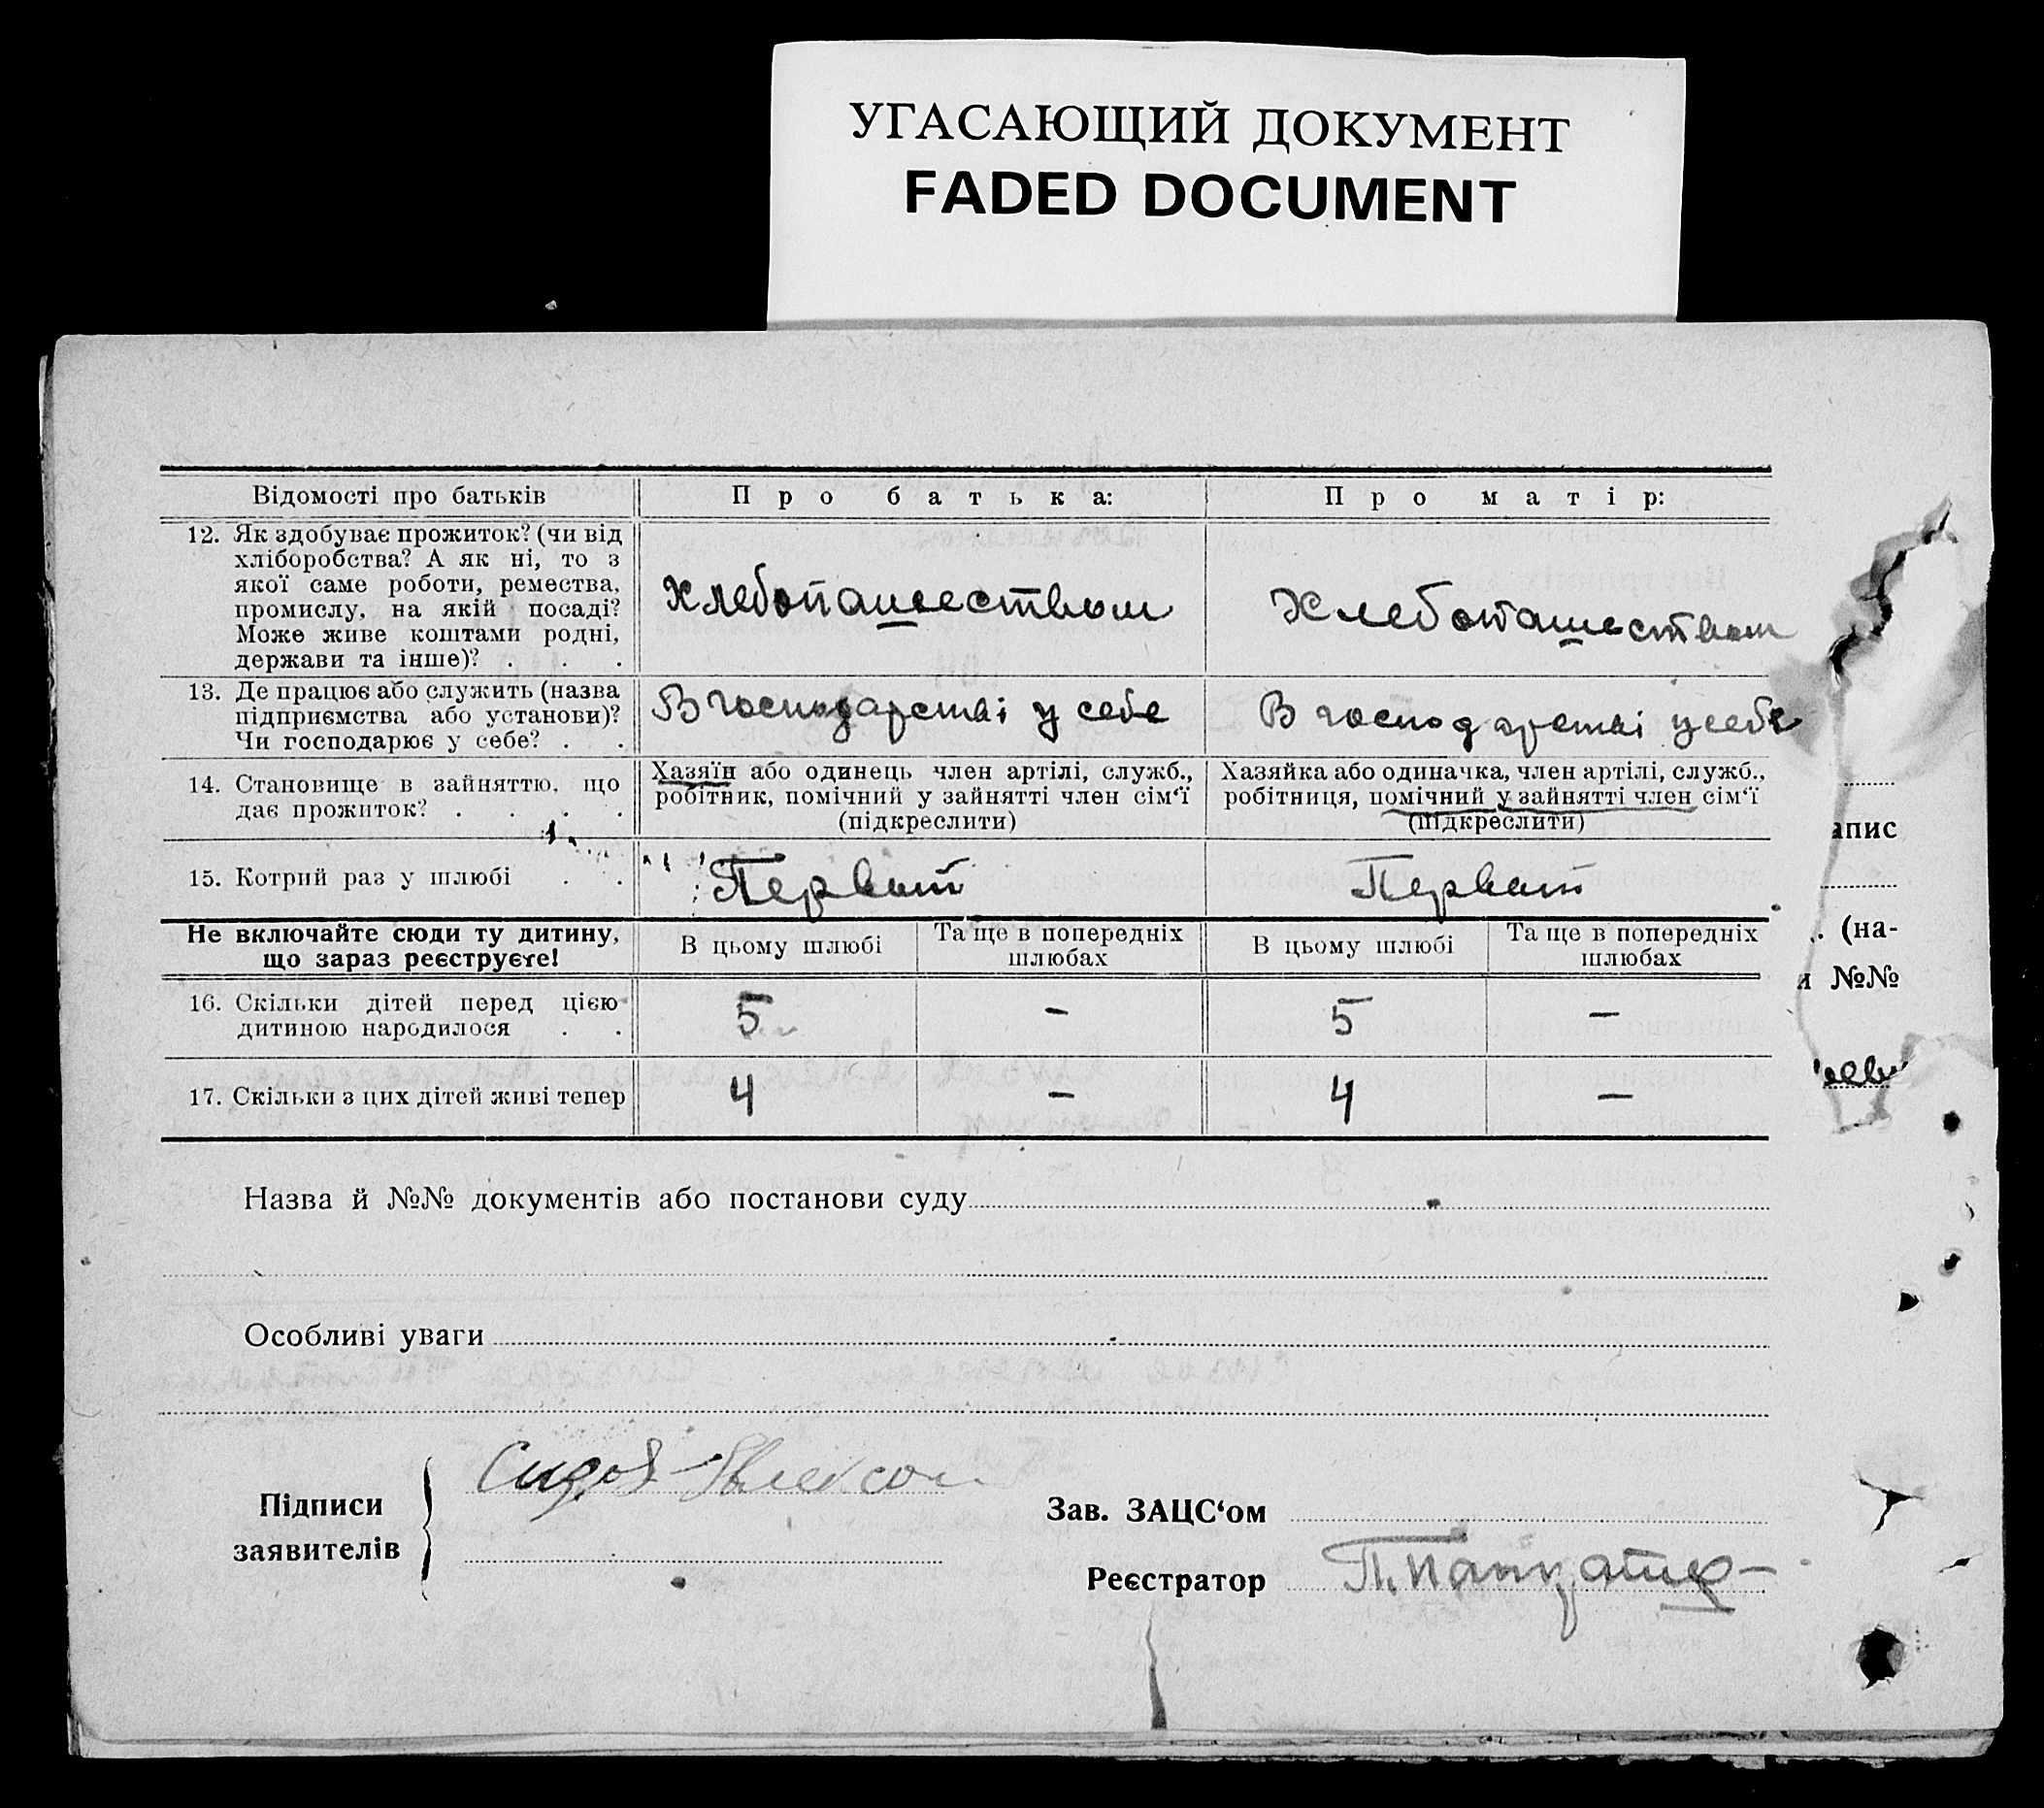 УГАСАЮЩИЙ ДОКУМЕНТ
FADED DOCUMENT
Відомості про батьків
Про батька:
Про матір:
12. Як здобуває прожиток? (чи від
хліборобства? А як ні, то з
якої саме роботи, ремества,
промислу, на якій посаді?
Може живе коштами родні,
держави та інше)? . . .
Хлебопашеством
Хлебопашеством
13. Де працює або служить (назва
підприємства або установи)?
Чи господарює у себе? . .
В господарстві у себе
В господарстві у себе
14. Становище в зайняттю, що
дає прожиток? . . . .
Хазяїн або одинець член артілі, служб.,
робітник, помічний у зайнятті член сім‘ї
(підкреслити)
Хазяйка або одиначка, член артілі, служб.,
робітниця, помічний у зайнятті член сім‘ї
(підкреслити)
апис
15. Котрий раз у шлюбі . .
Первый
Первый
Не включайте сюди ту дитину,
що зараз реєструєте!
В цьому шлюбі
Та ще в попередніх
шлюбах
В цьому шлюбі
Та ще в попередніх
шлюбах
. (на-
и №№
16. Скільки дітей перед цією
дитиною народилося . .
5
—
5
—
17. Скільки з цих дітей живі тепер
4
—
4
—
Назва й №№ документів або постанови суду
Особливі уваги
Підписи
заявителів
Сидов
Зав. ЗАЦС‘ом
Реєстратор